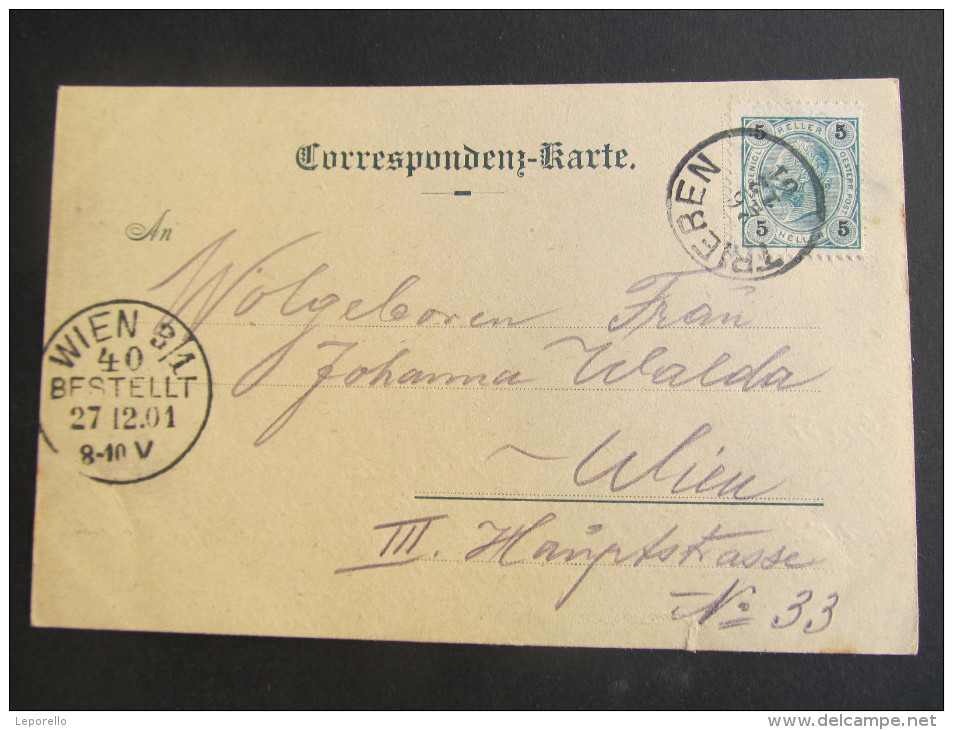 Correspondenz-Karte.
An
Wolgeboren Frau
Johanna Walda
Wien
III. Hauptstrasse
No 33
5 HELLER 5
OESTERR. POST
5 HELLER 5
TRIEBEN
26
01
WIEN 3/1
40
BESTELLT
27 12.01
8-10 V
Leporello
www.delcampe.net